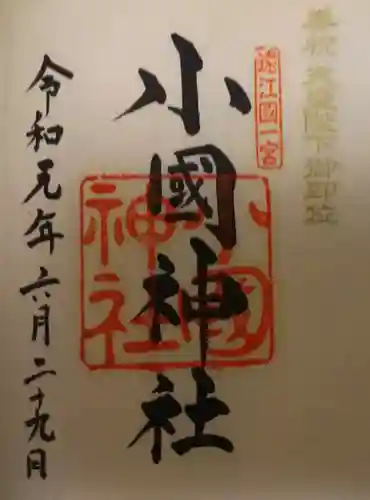 奉祝 天皇陛下御即位
遠江國一宮
小國神社
小國神社
令和元年六月二十九日